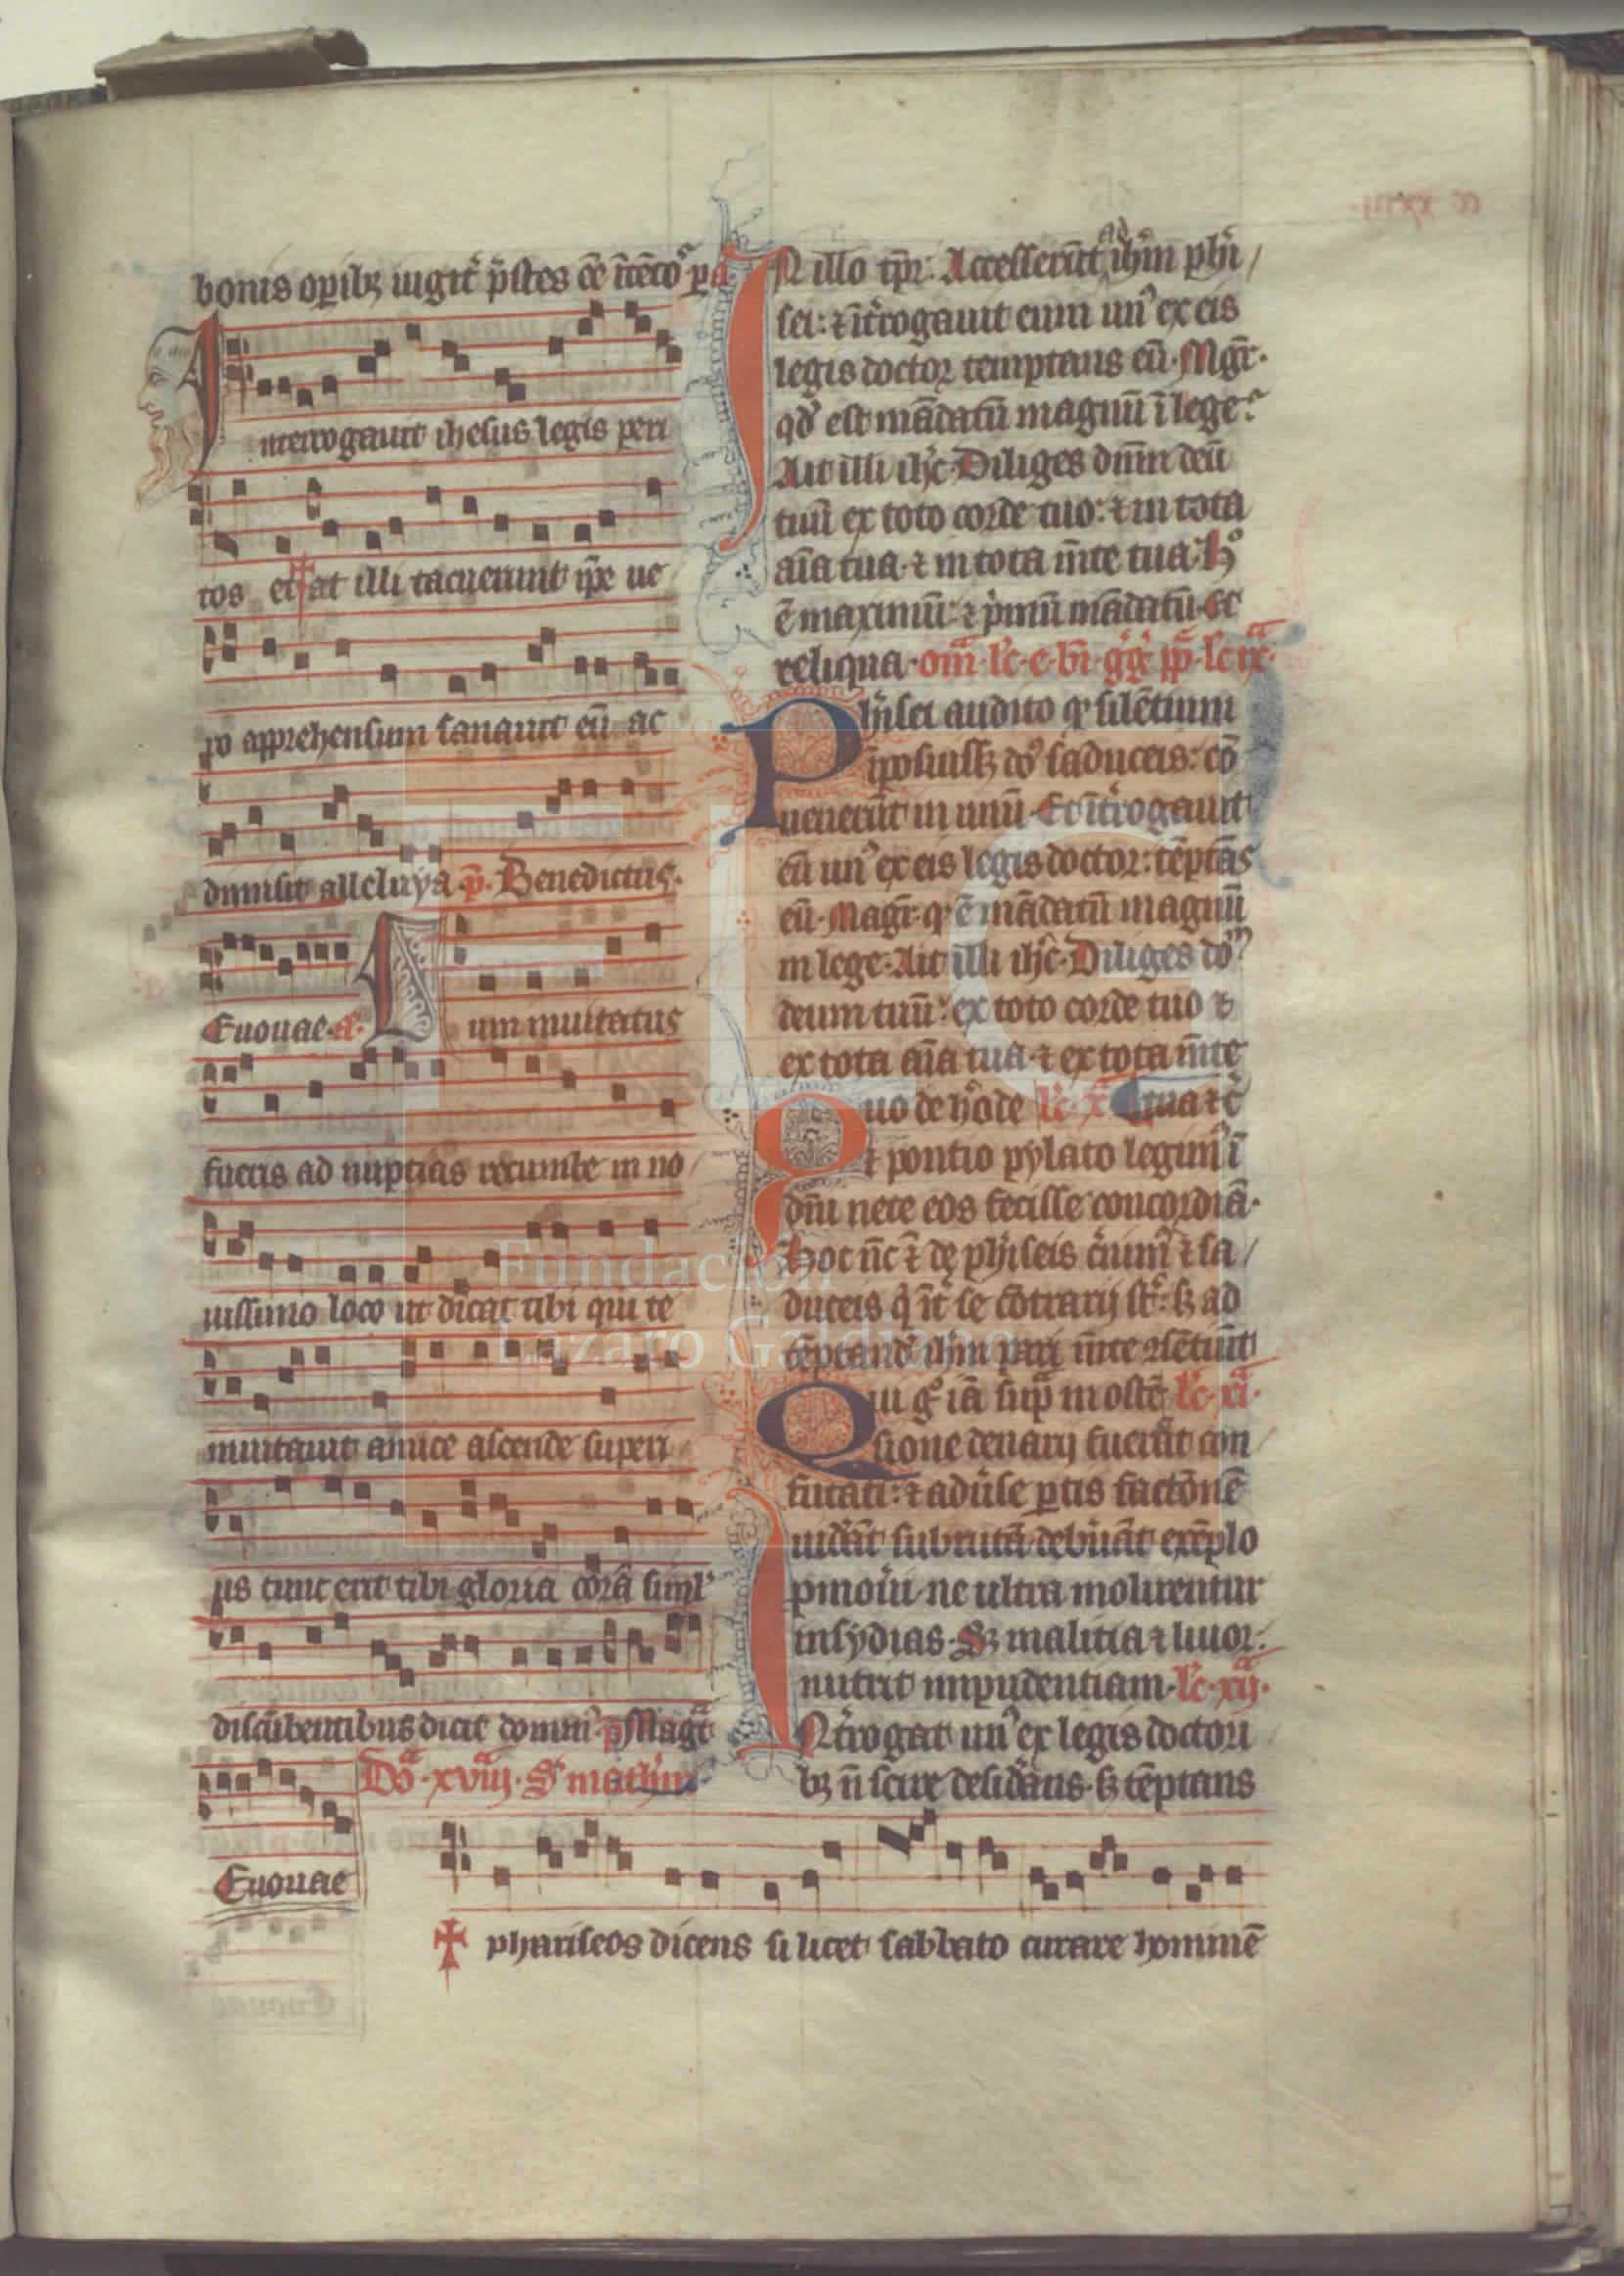 bonis op̄ibꝫ iugit̾ p̄stes ēē ītētoꝰ p
Interrogauit ihesus legis peri
tos et † at illi tacuerunt ip̄e ue
ro apprehensum sanauit eū ac
dimisit alleluya p̄. Benedictus.
Euouae. Cum inuitatus
fueris ad nuptias recumbe in no
uissimo loco ut dicat tibi qui te
inuitauit amice ascende superi
us tunc erit tibi gloria corā siml̾
discūbentibus dicit domin̾ p̄s Mag̾t
Dō xviij. S. mathm̄
Euouae
IN illo tp̄r. Accesserūt ad ihm̄ phi
sei: ⁊ it̾rogauit eum un̾ ex eis
legis doctor temptans eū. Mgr̄.
qd̾ est mādatū magnū ī lege?
Ait illi ihc̄. Diliges dn̄m deū
tuū ex toto corde tuo: ⁊ in tota
aīa tua. ⁊ in tota m̄te tua. h°
ē maximū ⁊ p̾mū mādatū. Et
reliqua. om̄. lc̄. e. bī. gg̾. pp̄. lc̄ ix.
Ph̾isei audito q̾ silētium
īposuissꝫ do̾ saduceis: cō
uenerūt in unū. Et it̾rogauit
eū un̾ ex eis legis doctor: tēptās
eū. Magr̄. q̾ ē mādatū magnū
in lege. Ait illi ihc̄. Diliges do̾
deum tuū: ex toto corde tuo ⁊
ex tota aīa tua. ⁊ ex tota m̄te
tua ⁊c̄
Quo de h̾ode lc̄. x.
⁊ pontio pylato legim̾ ī
dn̄i nece eos fecisse concordiā.
Hoc nc̄ ē de ph̾iseis c̾nim̾ ⁊ sa
duceis q̾ īt̾ se cōtrarij st̾: sꝫ ad
tēptand̾ ihm̄ pari m̄te ꝯsētiūt
Qui g̾ iā sup̄ in ostē lc̄. xi.
sione denarij fuerāt con
futati: ⁊ adu̾se p̄tis factōnē
uid̾āt subrutā. deb̾uāt exēplo
p̄moīti ne ultra molirentur
insydias. Sꝫ malitia ⁊ liuor.
nutrit impudentiam. lc̄. xij.
INt̾rogat un̾ ex legis doctori
bꝫ n̄ scire desid̾ans. sꝫ tēptans
† phariseos dicens si licet sabbato curare hominē